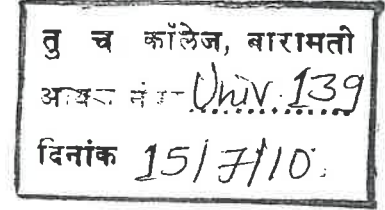 तु च कॉलेज, बारामती
आवक नं Univ. 139
दिनांक 15/7/10.